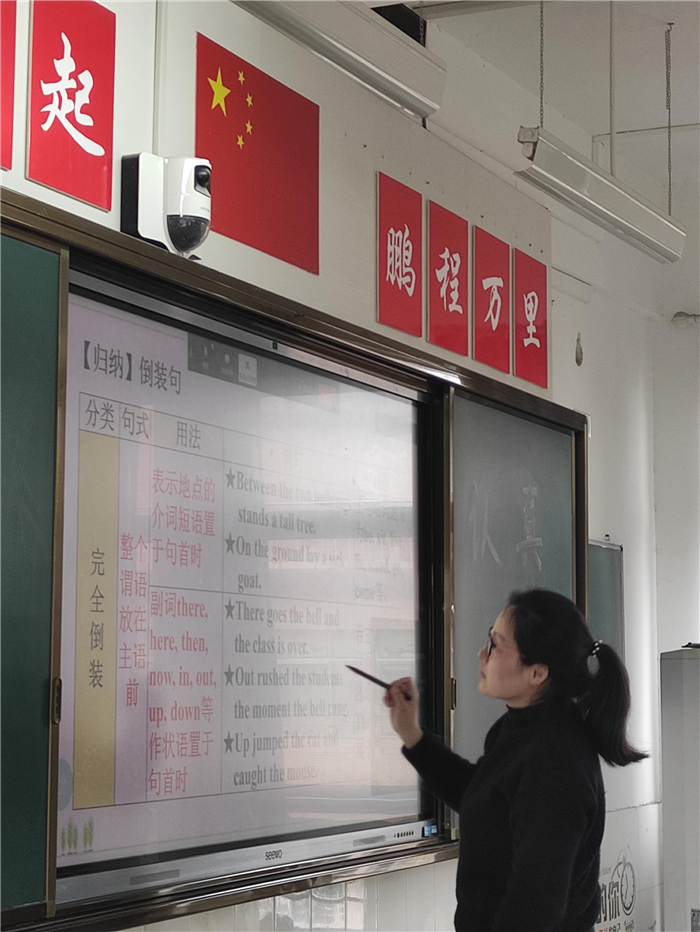 起
鹏程万里
【归纳】倒装句
分类
句式
用法
完全倒装
整个
谓语
放在
主语
前
表示地点的
介词短语置
于句首时
★Between the two
stands a tall tree.
★On the ground lay a sick
goat.
come等.
副词there,
here, then,
now, in, out,
up, down等
作状语置于
句首时
★There goes the bell and
the class is over.
★Out rushed the students
the moment the bell rang.
★Up jumped the cat and
caught the mouse.
认真
seewo
的你